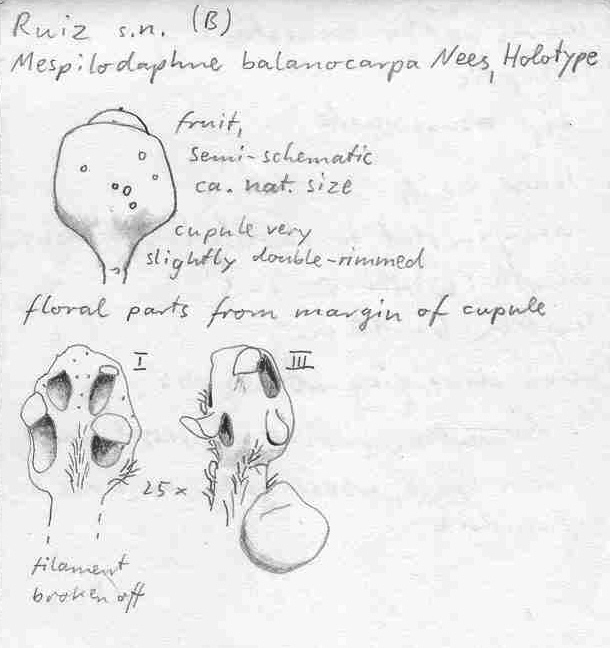 Ruiz s.n. (B)
Mespilodaphne balanocarpa Nees, Holotype
fruit,
semi-schematic
ca. nat. size
cupule very
slightly double-rimmed
floral parts from margin of cupule
I
III
25 x
filament
broken off